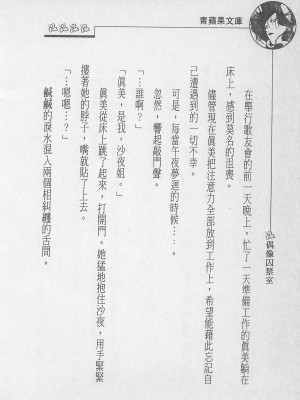 青蘋果文庫
偶像囚禁室
在舉行歌友會的前一天晚上，忙了一天準備工作的眞美躺在
床上，感到莫名的沮喪。
儘管現在眞美把注意力全部放到工作上，希望能藉此忘記自
己遭遇到的一切不幸。
可是，每當午夜夢迴的時候…⋯。
忽然，響起敲門聲。
「…誰啊？」
「眞美，是我，沙夜姐。」
眞美從床上跳了起來，打開門。她猛地抱住沙夜，用手緊緊
摟著她的脖子，嘴就貼了上去。
「…嗯嗯…？」
鹹鹹的淚水混入兩個相糾纏的舌間。